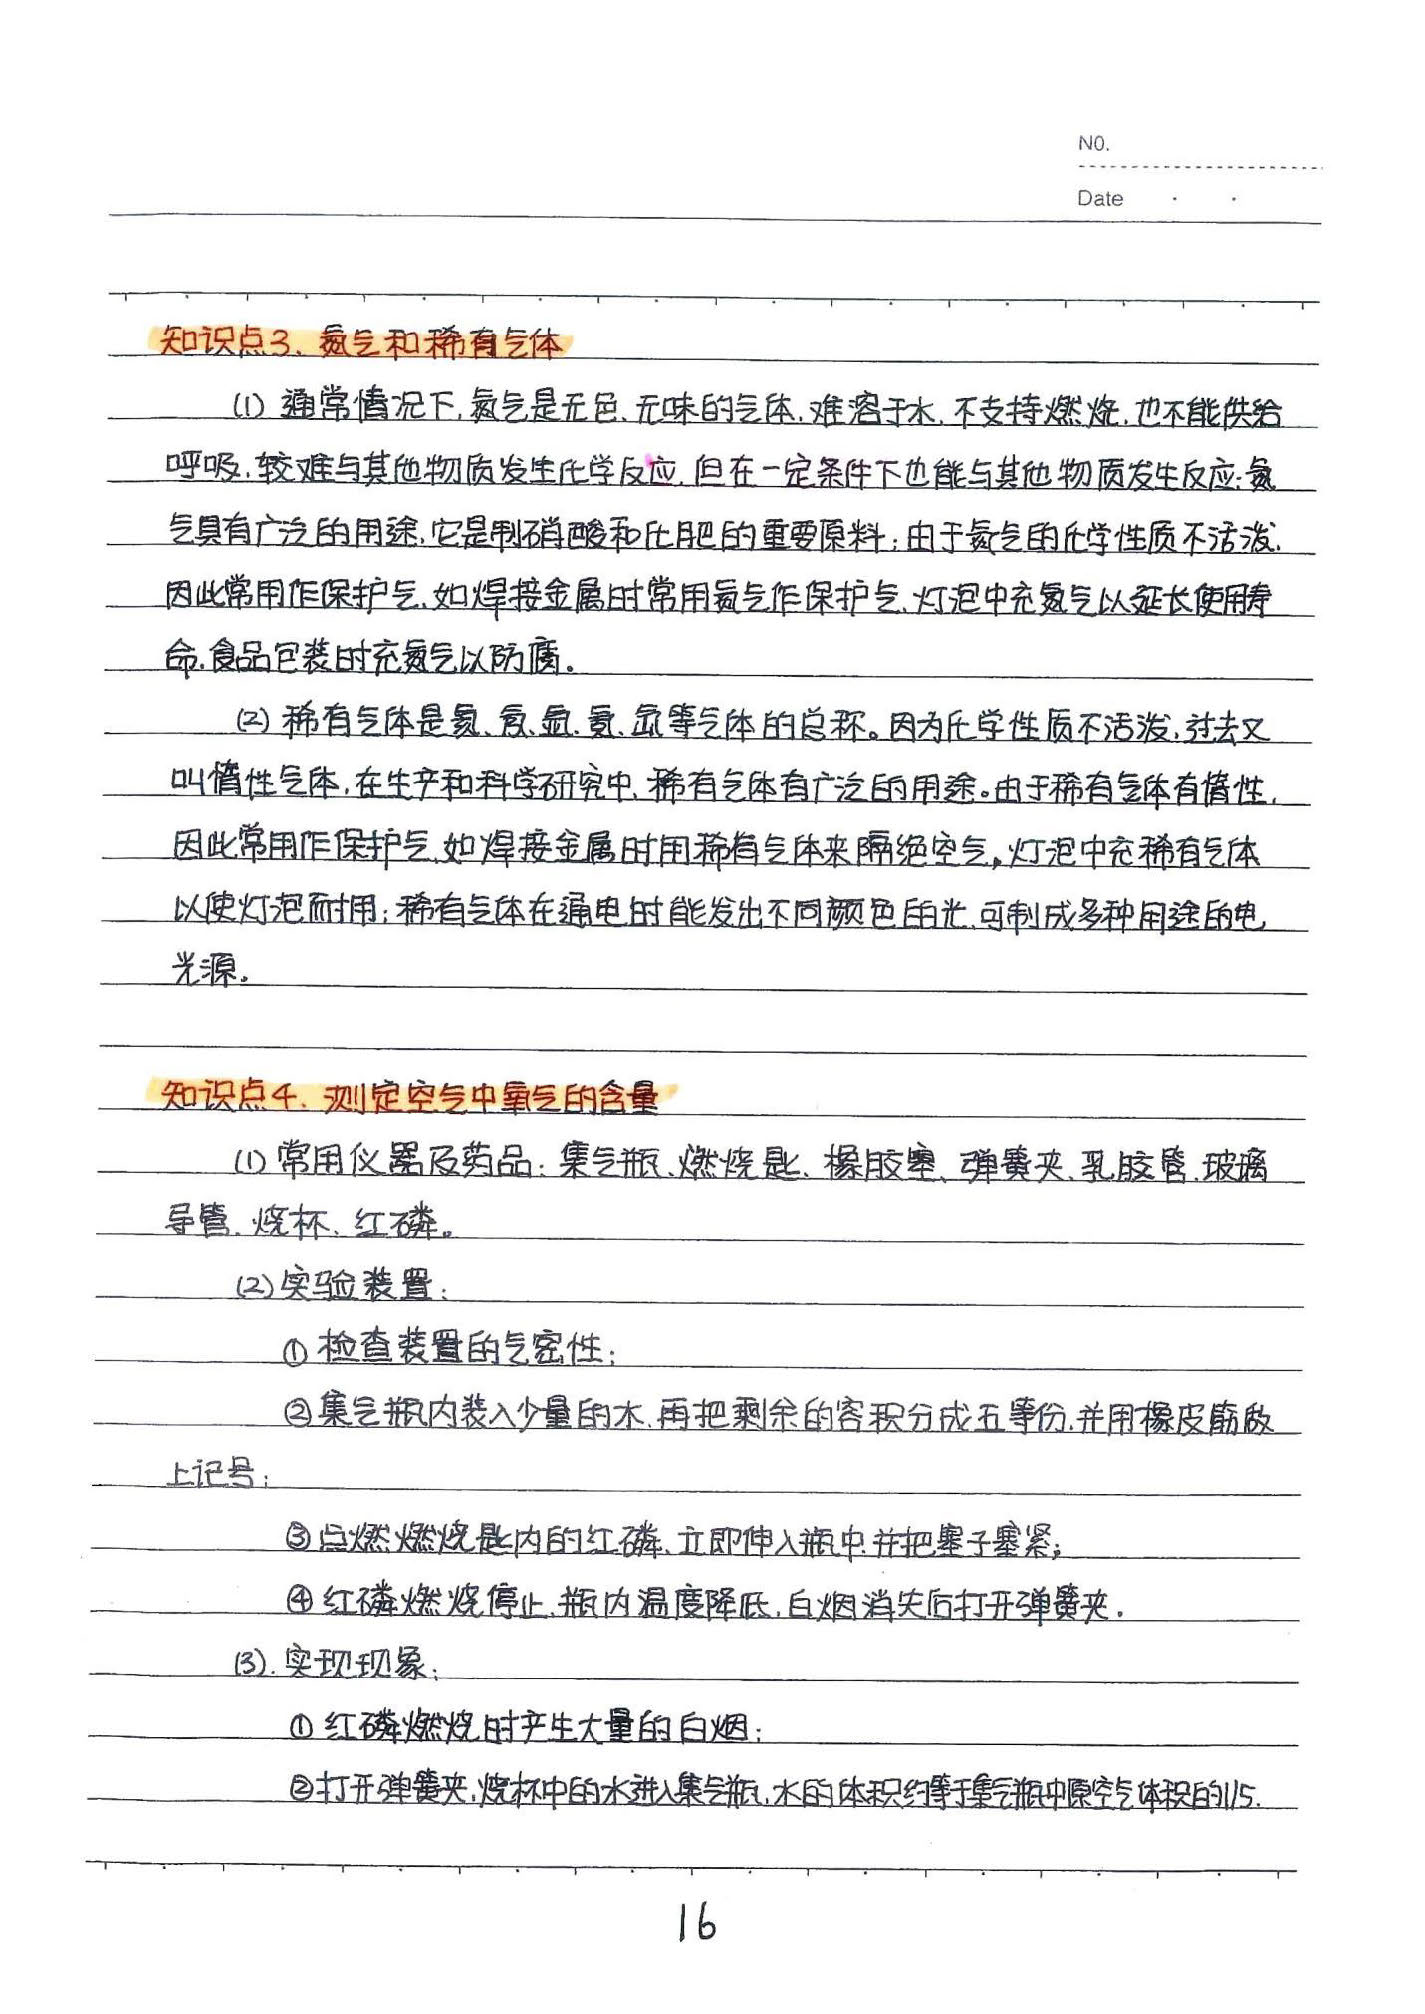 NO.
Date
知识点3、氮气和稀有气体
(1) 通常情况下,氮气是无色、无味的气体,难溶于水,不支持燃烧,也不能供给
呼吸,较难与其他物质发生化学反应,但在一定条件下也能与其他物质发生反应;氮
气具有广泛的用途,它是制硝酸和化肥的重要原料;由于氮气的化学性质不活泼,
因此常用作保护气,如焊接金属时常用氮气作保护气,灯泡中充氮气以延长使用寿
命,食品包装时充氮气以防腐。
(2) 稀有气体是氦、氖、氩、氪、氙等气体的总称。因为化学性质不活泼,过去又
叫惰性气体,在生产和科学研究中,稀有气体有广泛的用途。由于稀有气体有惰性,
因此常用作保护气,如焊接金属时用稀有气体来隔绝空气,灯泡中充稀有气体
以使灯泡耐用;稀有气体在通电时能发出不同颜色的光,可制成多种用途的电
光源。
知识点4、测定空气中氧气的含量
(1) 常用仪器及药品:集气瓶、燃烧匙、橡胶塞、弹簧夹、乳胶管、玻璃
导管、烧杯、红磷。
(2) 实验装置:
① 检查装置的气密性;
② 集气瓶内装入少量的水,再把剩余的容积分成五等份,并用橡皮筋做
上记号;
③ 点燃燃烧匙内的红磷,立即伸入瓶中,并把塞子塞紧;
④ 红磷燃烧停止,瓶内温度降低,白烟消失后打开弹簧夹.
(3). 实现现象:
① 红磷燃烧时产生大量的白烟;
② 打开弹簧夹,烧杯中的水进入集气瓶,水的体积约等于集气瓶中原空气体积的1/5.
16